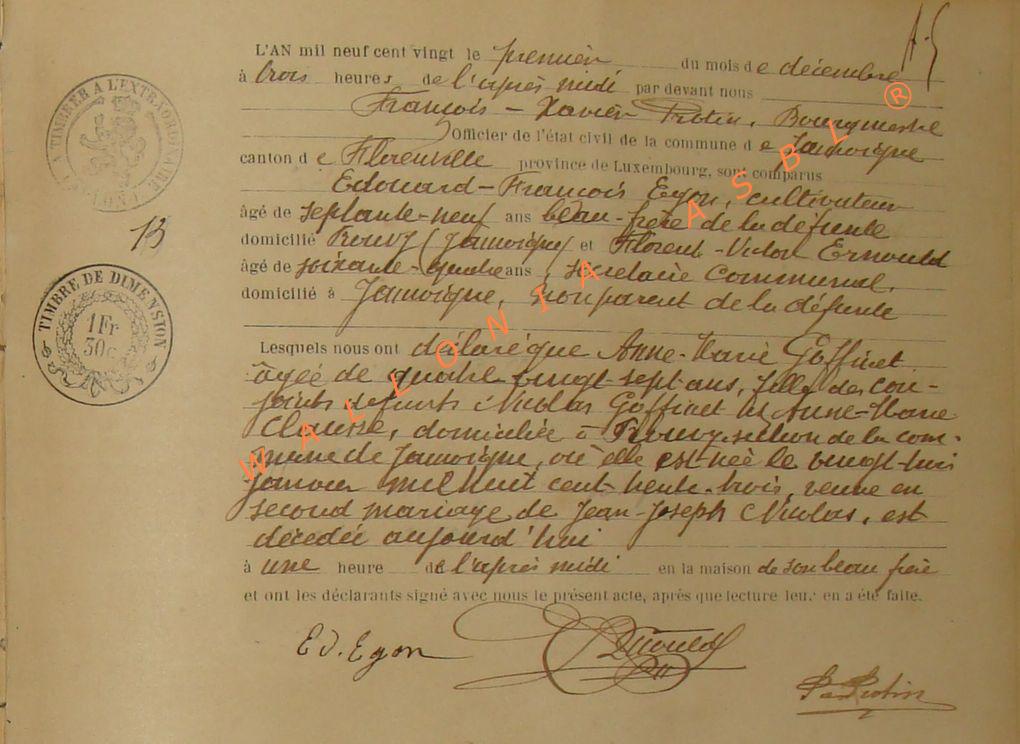 A-S
L'AN mil neuf cent vingt le premier du mois de décembre
à trois heures de l'après midi par devant nous
François-Xavier Protin, Bourgmestre
Officier de l'état civil de la commune de Jamoigne
canton de Florenville province de Luxembourg, sont comparus
Edouard-François Egon, cultivateur
âgé de septante-neuf ans beau-frère de la défunte
domicilié Prouvy (Jamoigne) et Florent-Victor Ernould
âgé de soixante-quatre ans, secrétaire communal,
domicilié à Jamoigne, non parent de la défunte
Lesquels nous ont déclaré que Anne-Marie Goffinet
âgée de quatre vingt-sept ans, fille des con-
joints défunts Nicolas Goffinet et Anne-Marie
Clausse, domiciliée à Prouvy section de la com-
mune de Jamoigne, où elle est née le vingt-trois
janvier mil huit cent trente-trois, veuve en
second mariage de Jean-Joseph Nicolas, est
décédée aujourd'hui
à une heure de l'après midi en la maison de son beau frère
et ont les déclarants signé avec nous le présent acte, après que lecture leur en a été faite.
Ed. Egon
Ernould
Protin
TIMBRÉ A L'EXTRAORDINAIRE
13
TIMBRE DE DIMENSION
1 Fr
30 c
WALLONIA ASBL ®